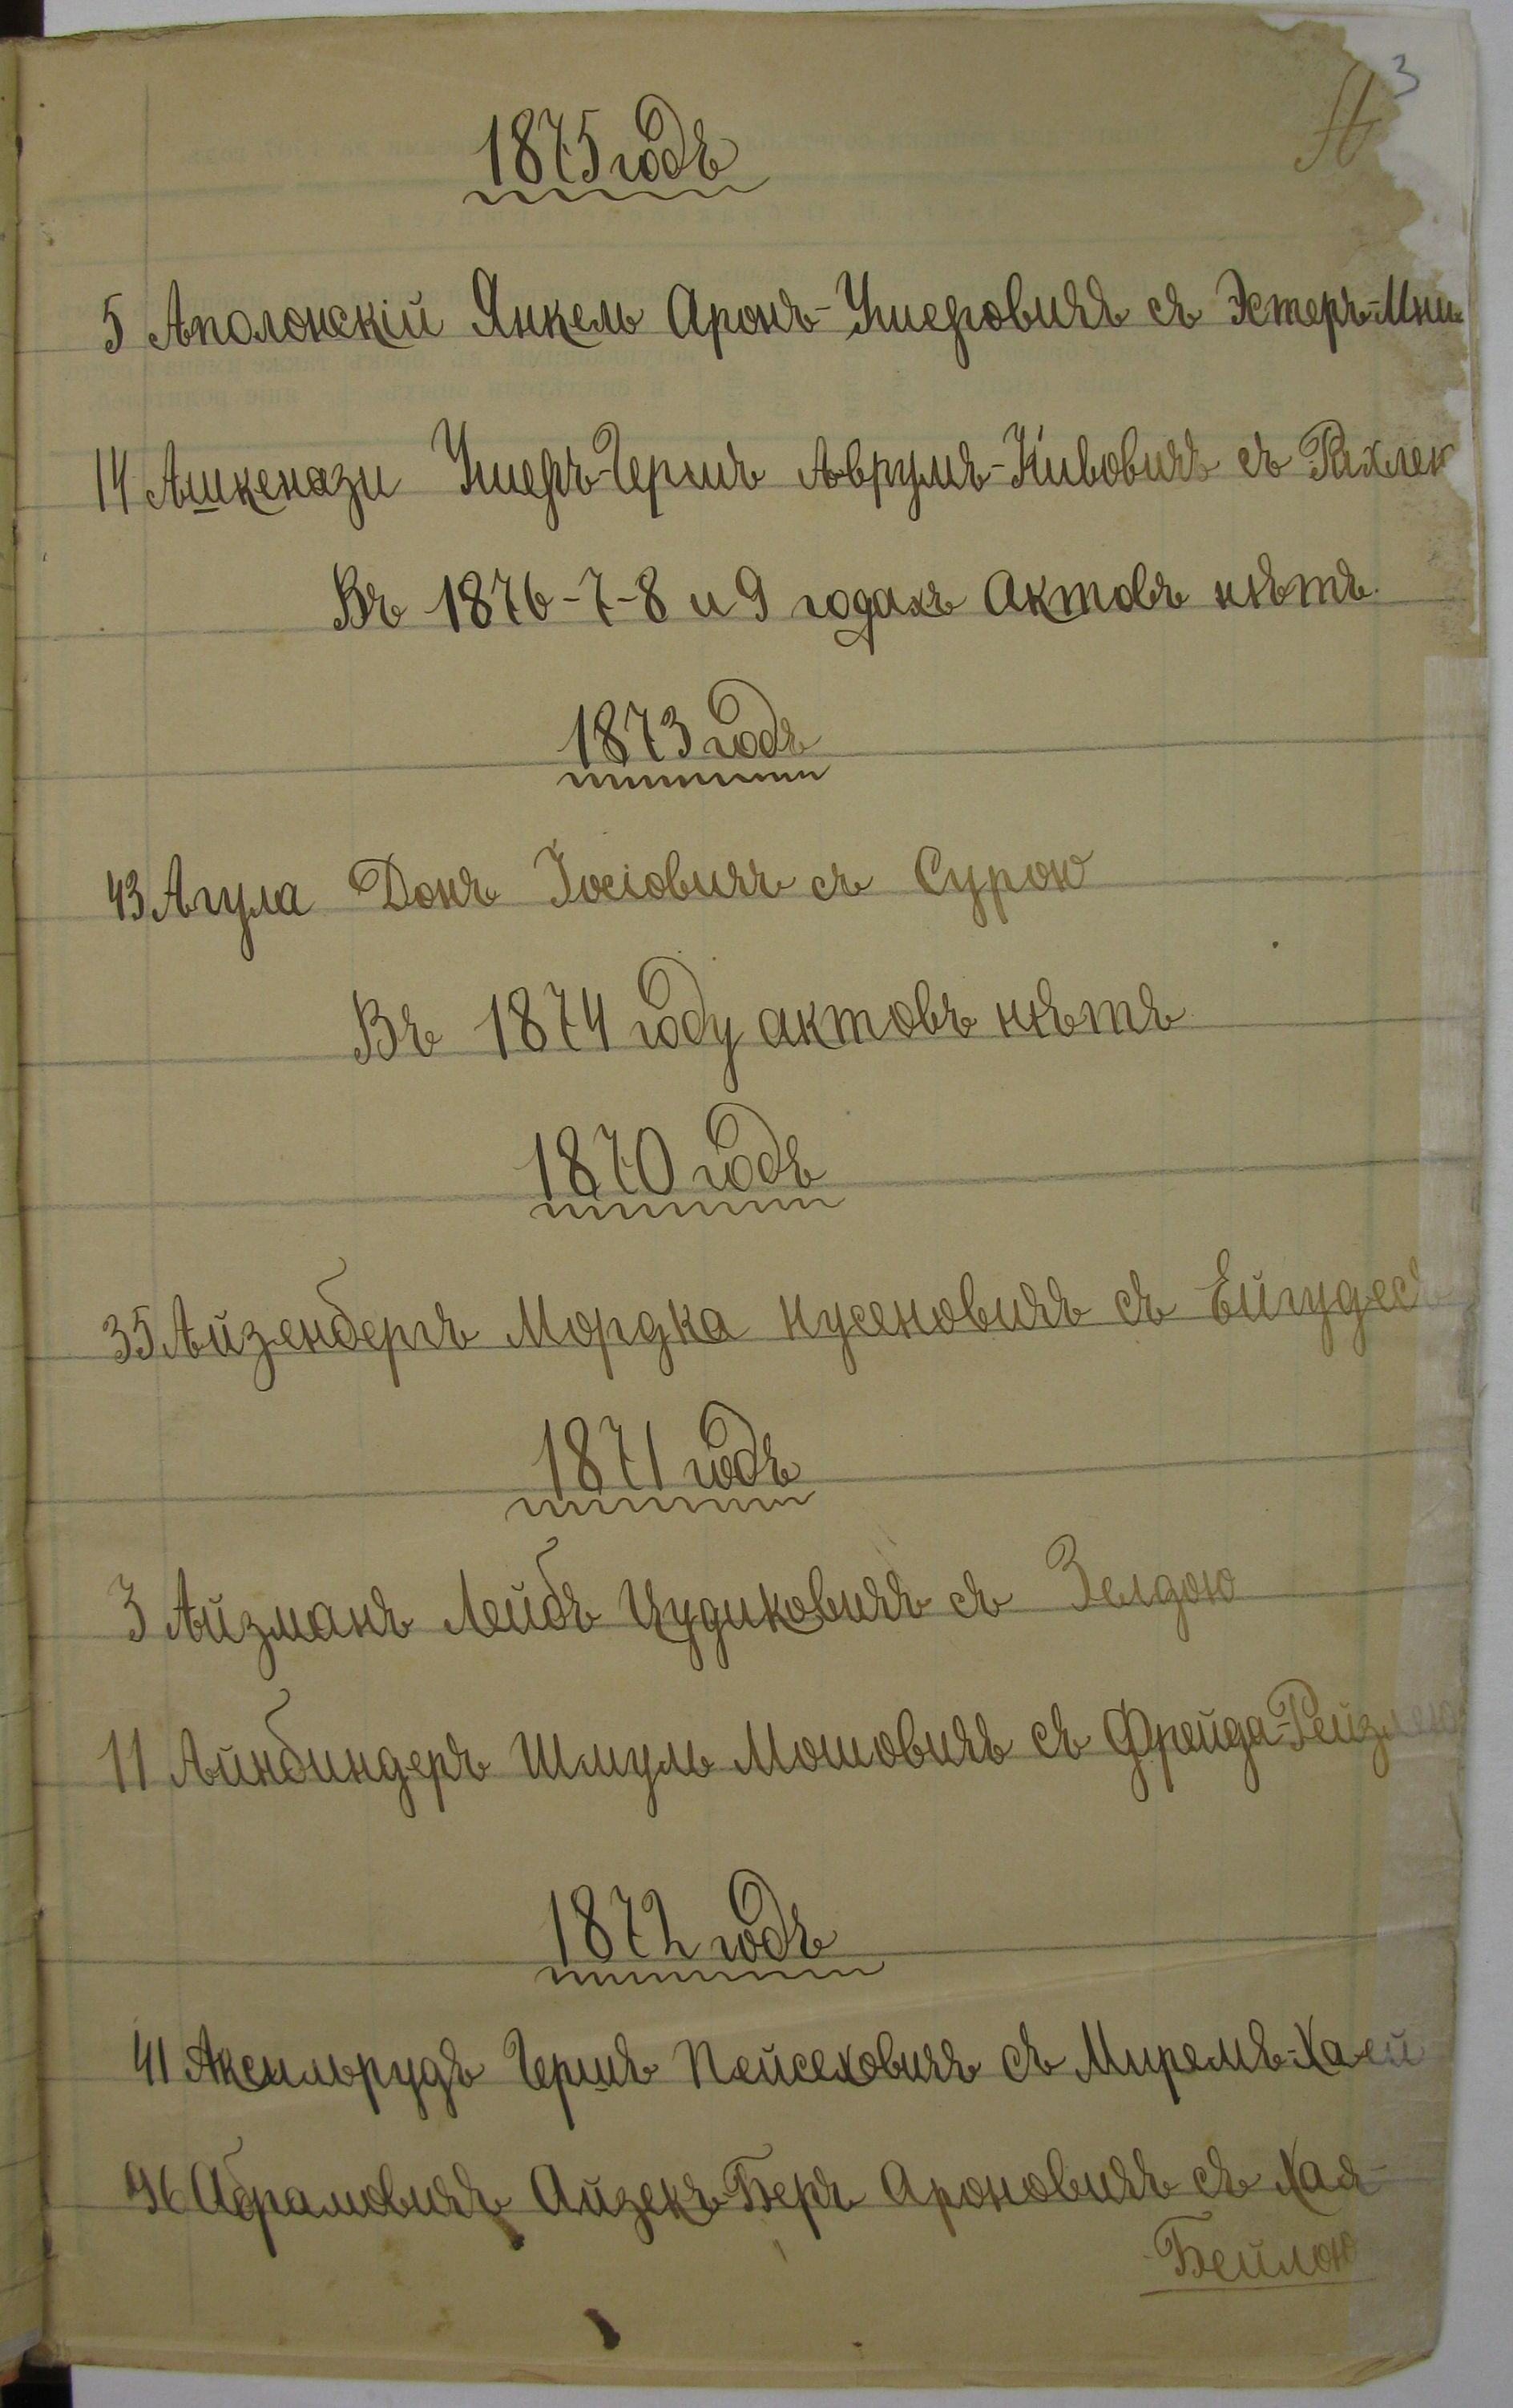 3
А
1875 годъ
5 Аполонскій Янкель Аронъ-Ушеровичъ съ Эстеръ-Мни-
14 Ашкенази Ушеръ-Гершъ Аврумъ-Кивовичъ съ Рахлею
Въ 1876-7-8 и 9 годахъ актовъ нѣтъ.
1873 годъ
43 Агула Донъ Іосіовичъ съ Сурою
Въ 1874 году актовъ нѣтъ
1870 годъ
35 Айзенбергъ Мордка Нусеновичъ съ Ейгудесъ
1871 годъ
3 Айзманъ Лейбъ Цудиковичъ съ Зелдою
11 Айнбиндеръ Шмуль Мошовичъ съ Фрейда-Рейзлею
1872 годъ
41 Аксильрудъ Гершъ Пейсеховичъ съ Миремъ-Хаей
46 Абрамовичъ Айзекъ-Беръ Ароновичъ съ Хая-
Бейлою